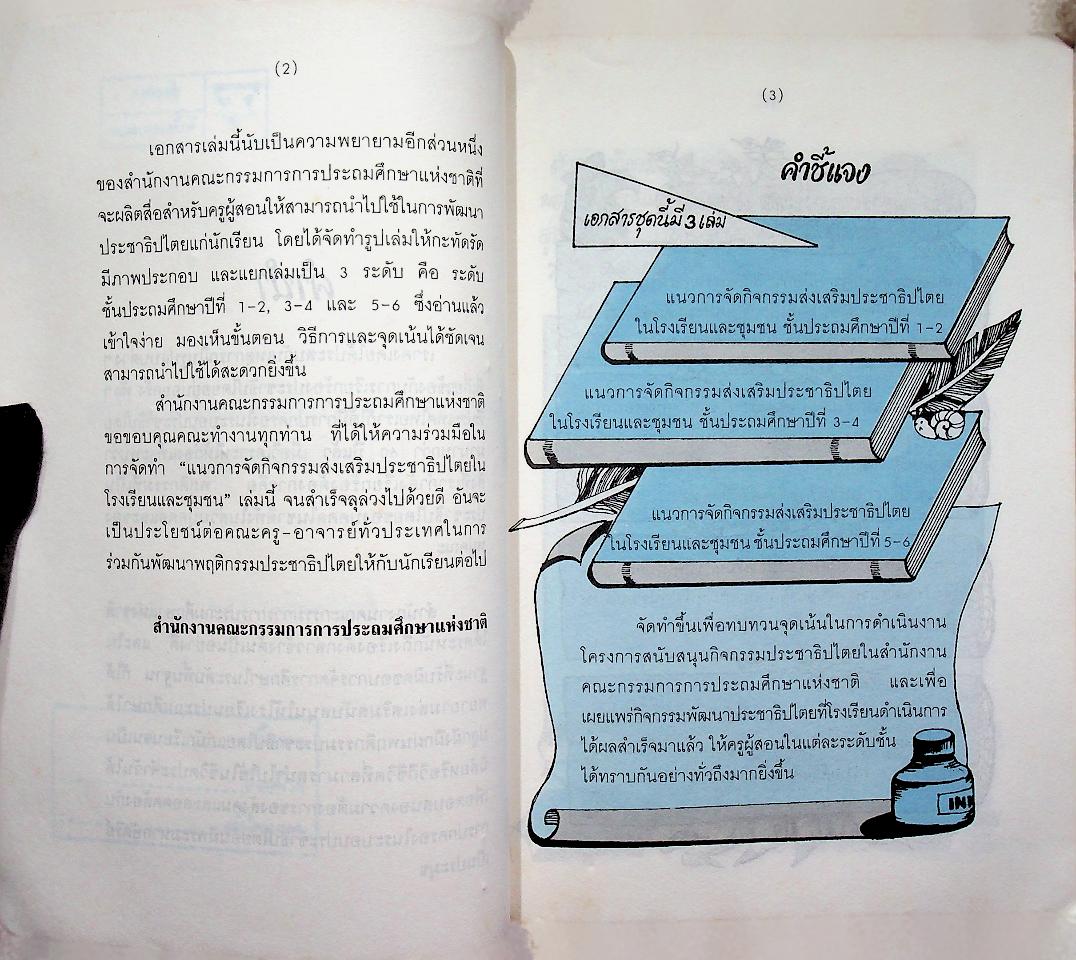 (2)
เอกสารเล่มนี้นับเป็นความพยายามอีกส่วนหนึ่ง
ของสำนักงานคณะกรรมการการประถมศึกษาแห่งชาติที่
จะผลิตสื่อสำหรับครูผู้สอนให้สามารถนำไปใช้ในการพัฒนา
ประชาธิปไตยแก่นักเรียน โดยได้จัดทำรูปเล่มให้กะทัดรัด
มีภาพประกอบ และแยกเล่มเป็น 3 ระดับ คือ ระดับ
ชั้นประถมศึกษาปีที่ 1-2, 3-4 และ 5-6 ซึ่งอ่านแล้ว
เข้าใจง่าย มองเห็นขั้นตอน วิธีการและจุดเน้นได้ชัดเจน
สามารถนำไปใช้ได้สะดวกยิ่งขึ้น
สำนักงานคณะกรรมการการประถมศึกษาแห่งชาติ
ขอขอบคุณคณะทำงานทุกท่าน ที่ได้ให้ความร่วมมือใน
การจัดทำ “แนวการจัดกิจกรรมส่งเสริมประชาธิปไตยใน
โรงเรียนและชุมชน” เล่มนี้ จนสำเร็จลุล่วงไปด้วยดี อันจะ
เป็นประโยชน์ต่อคณะครู-อาจารย์ทั่วประเทศในการ
ร่วมกันพัฒนาพฤติกรรมประชาธิปไตยให้กับนักเรียนต่อไป
สำนักงานคณะกรรมการการประถมศึกษาแห่งชาติ
(3)
คำชี้แจง
เอกสารชุดนี้มี 3 เล่ม
แนวการจัดกิจกรรมส่งเสริมประชาธิปไตย
ในโรงเรียนและชุมชน ชั้นประถมศึกษาปีที่ 1-2
แนวการจัดกิจกรรมส่งเสริมประชาธิปไตย
ในโรงเรียนและชุมชน ชั้นประถมศึกษาปีที่ 3-4
แนวการจัดกิจกรรมส่งเสริมประชาธิปไตย
ในโรงเรียนและชุมชน ชั้นประถมศึกษาปีที่ 5-6
จัดทำขึ้นเพื่อทบทวนจุดเน้นในการดำเนินงาน
โครงการสนับสนุนกิจกรรมประชาธิปไตยในสำนักงาน
คณะกรรมการการประถมศึกษาแห่งชาติ และเพื่อ
เผยแพร่กิจกรรมพัฒนาประชาธิปไตยที่โรงเรียนดำเนินการ
ได้ผลสำเร็จมาแล้ว ให้ครูผู้สอนในแต่ละระดับชั้น
ได้ทราบกันอย่างทั่วถึงมากยิ่งขึ้น
INK